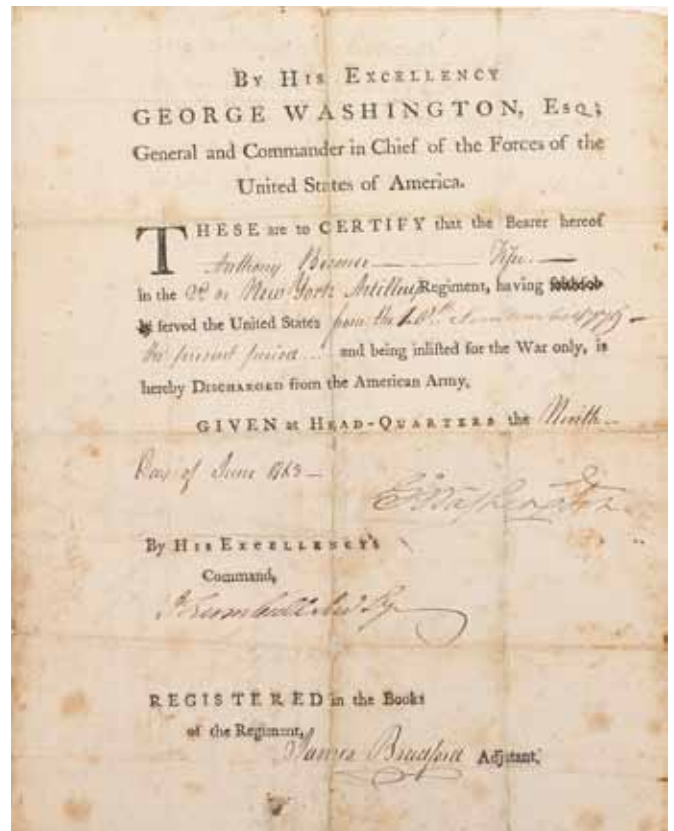 BY HIS EXCELLENCY
GEORGE WASHINGTON, ESQ;
General and Commander in Chief of the Forces of the
United States of America.
THESE are to CERTIFY that the Bearer hereof
Anthony Fifer
in the 2d or New York Artillery Regiment, having
served the United States from the
the present period and being inlisted for the War only, is
hereby DISCHARGED from the American Army,
GIVEN at HEAD-QUARTERS the Ninth
Day of June 1783
G:Washington
By HIS EXCELLENCY'S
Command,
J Trumbull Jun Sy
REGISTERED in the Books
of the Regiment,
James Bradford Adjutant,